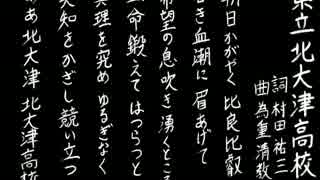 県立北大津高校
詞 村田祐三
曲 為重清敬
朝日かがやく比良比叡
若き血潮に眉あげて
希望の息吹き湧くところ
生命鍛えてはつらつと
真理を究めゆるぎなく
英知をかざし競い立つ
ああ北大津 北大津高校